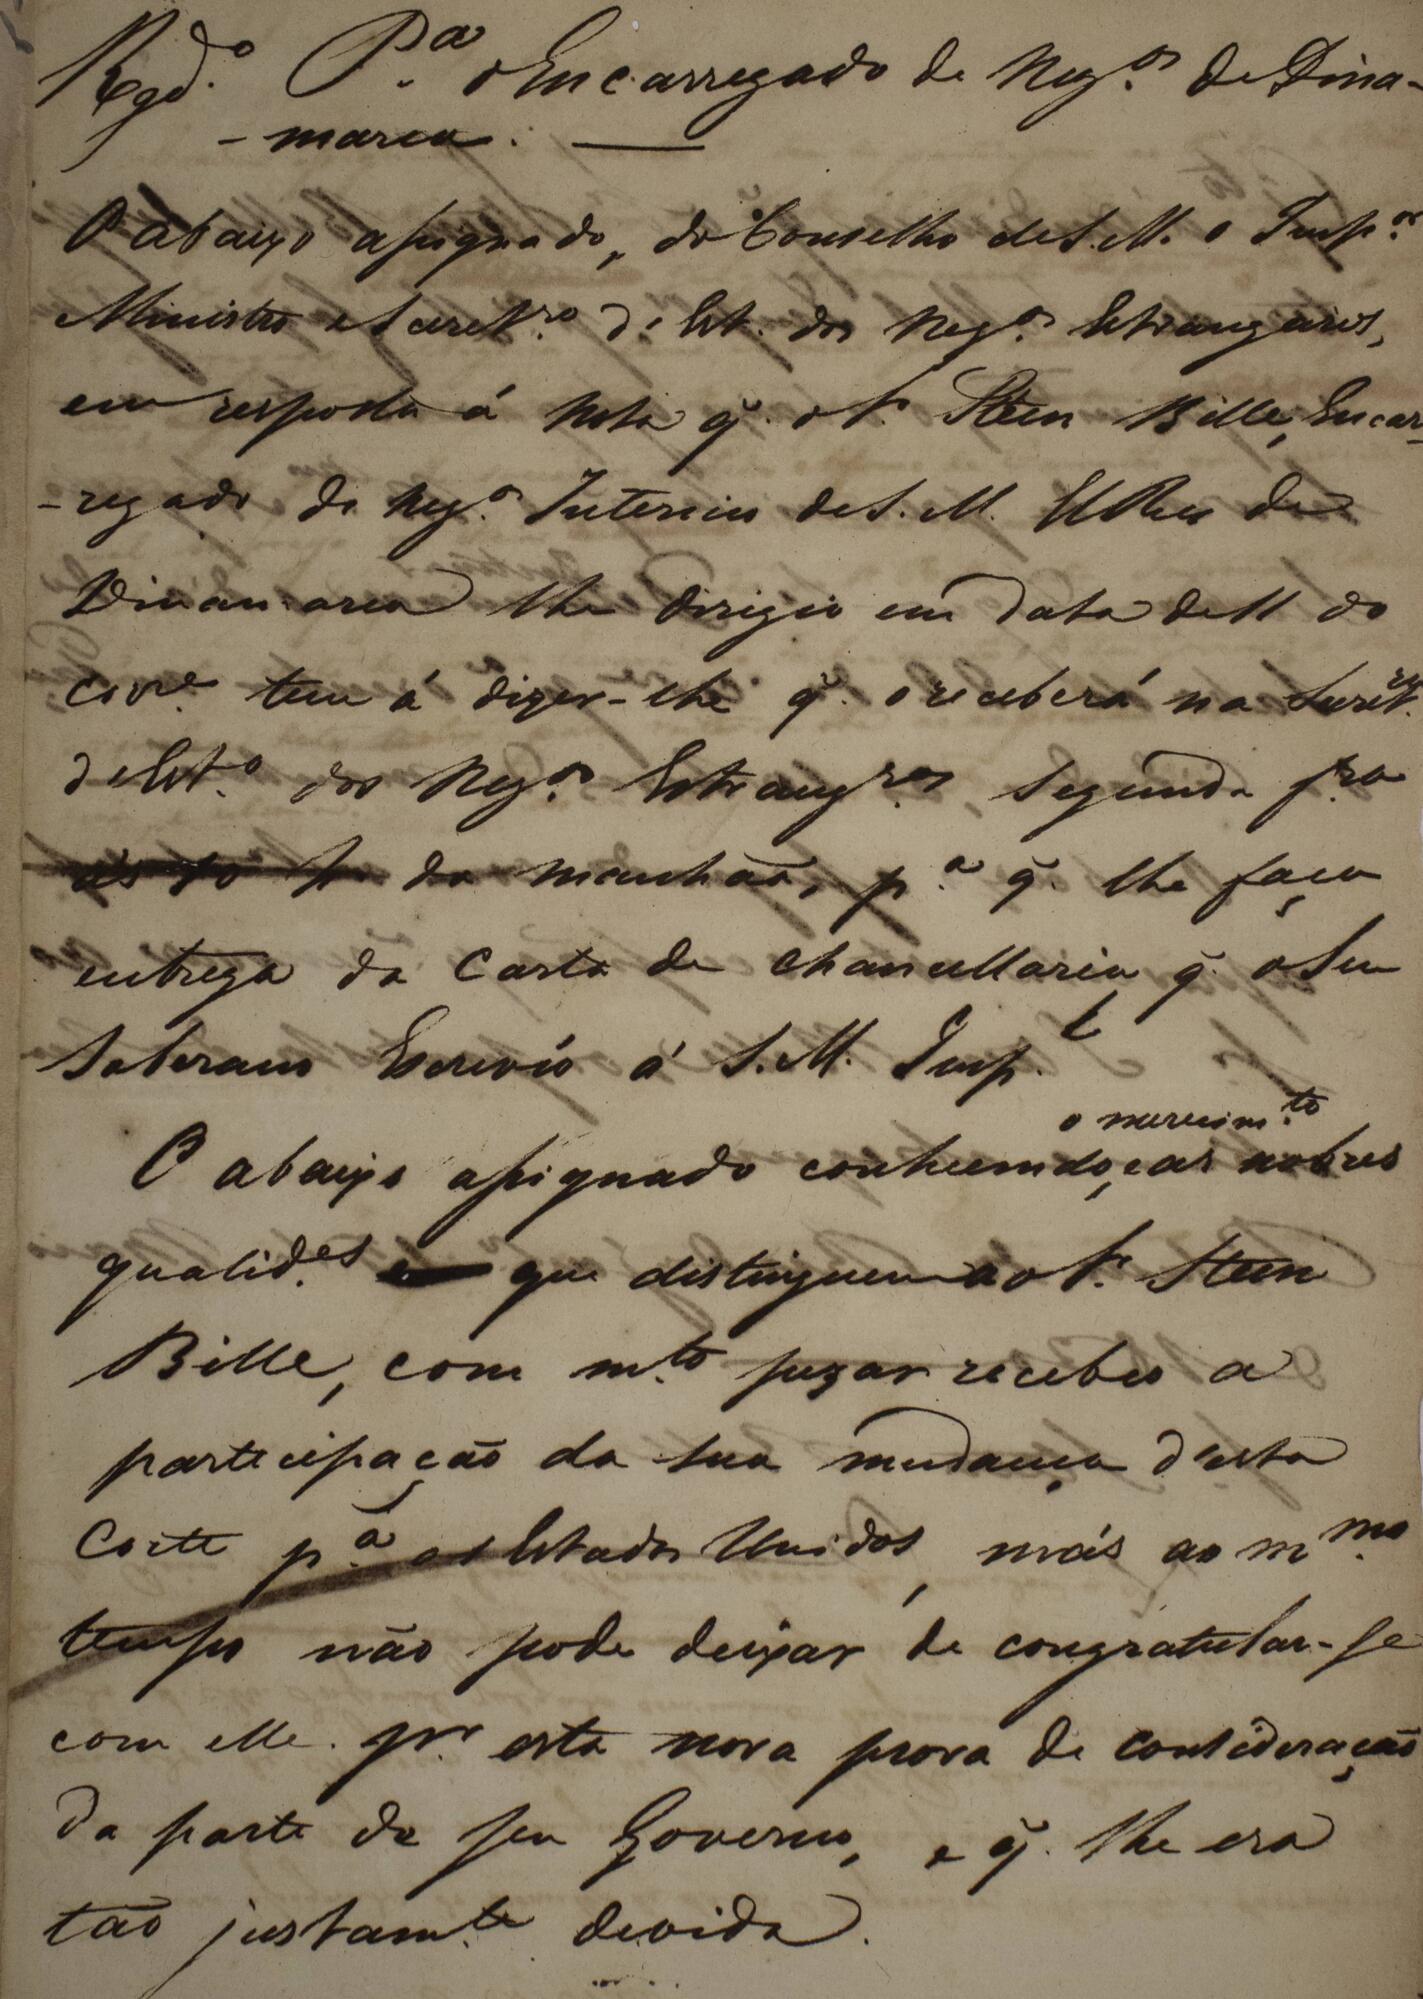 Regd.º P.ª o Encarregado de Neg.os de Dina-
-marca.
O abaixo assignado, do Conselho de S. M. o Imp.or
Ministro e Secret.ro d'Est. dos Neg.os Estrangeiros,
em resposta á Nota q̃. o S.r Steen Bille, Encar-
-regado de Neg.os Interino de S. M. ElRei de
Dinamarca lhe dirigio em data de 11 do
corr.e tem á dizer-lhe q̃. o receberá na Secret.ra
d'Est.º dos Neg.os Estrang.ros, Segunda f.ra
ás 10 h. da manhãa, p.ª q̃. lhe faça
entrega da Carta de Chancellaria q̃. o Seu
Soberano Escrevêo á S. M. Imp.l
o merecim.to
O abaixo assignado conhecendo, e as nobres
qualid.es que distinguem ao S.r Steen
Bille, com m.to pezar recebeo a
participação da sua mudança d'esta
Corte p.ª os Estados Unidos, más ao m.mo
tempo não pode deixar de congratular-se
com elle p.r esta nova prova de consideração
da parte de seu Governo, e q̃. lhe era
tão justam.te devida.